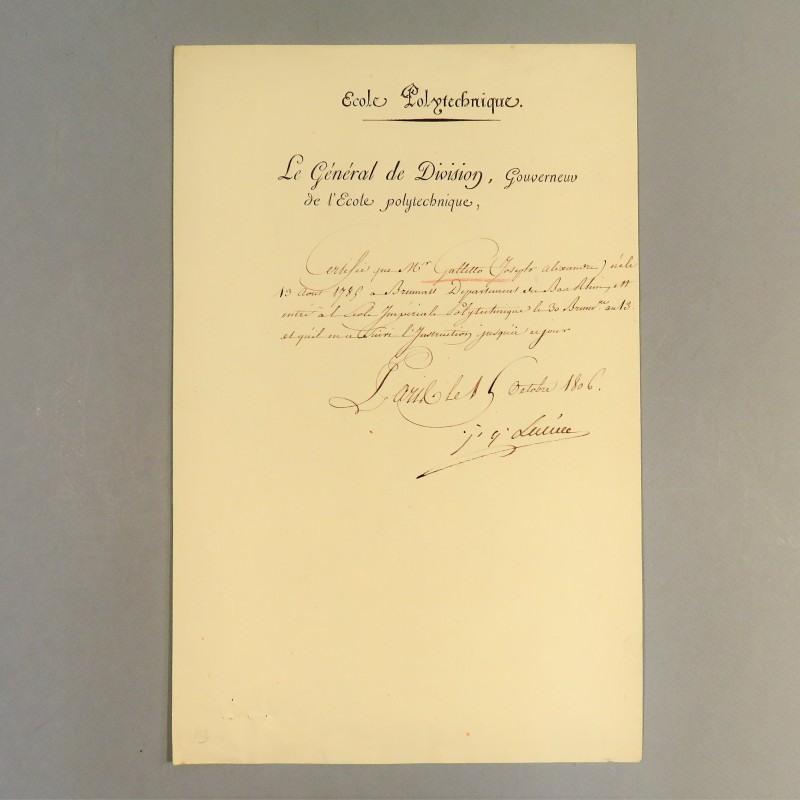 Ecole Polytechnique.
Le Général de Division, Gouverneur
de l'Ecole polytechnique,
Certifie que Mr. Galletto (Joseph Alexandre) né le
13 Août 1785 à Brumatt Département du Bas Rhin, est
entré à l'Ecole Impériale Polytechnique le 30 Brumre. an 13
et qu'il en a Suivi l'Instruction jusqu'à ce jour
Paris le 15 Octobre 1806.